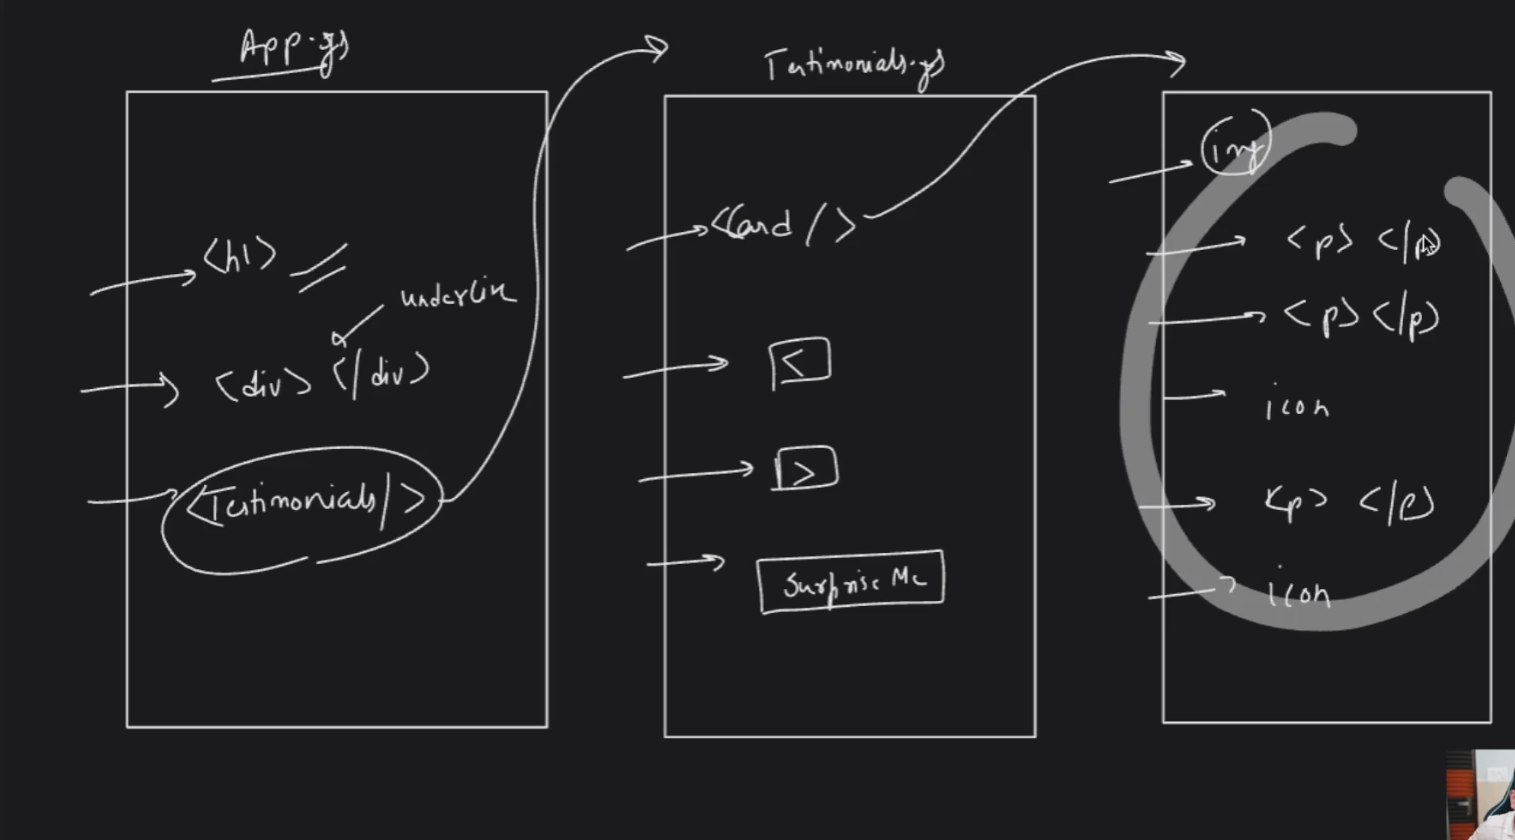 App.js
<h1>
underline
<div> </div>
<Testimonials/>
Testimonials.js
<Card />
<
>
Surprise Me
img
<p> </p>
<p> </p>
icon
<p> </p>
icon